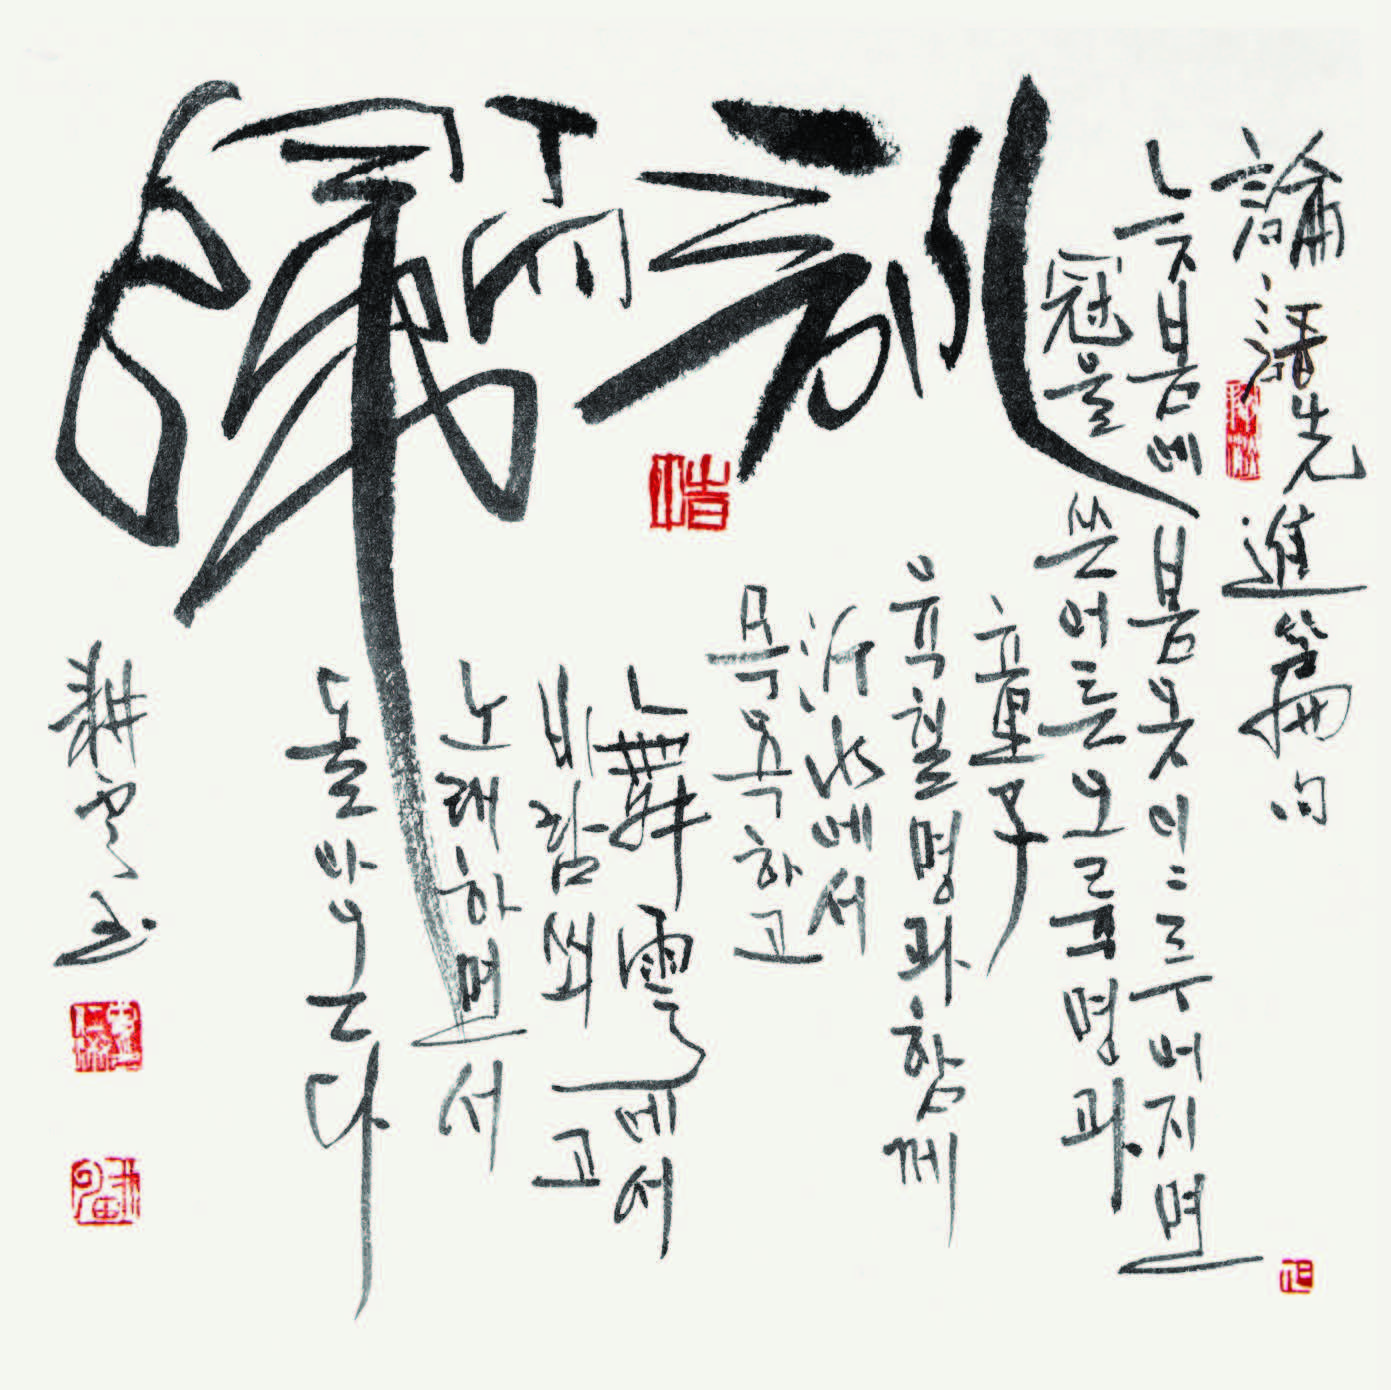 詠而歸
論語先進篇句
늦봄에 봄옷이 이루어지면
冠을 쓴 어른 오륙명과
童子
육칠명과 함께
沂水에서
목욕하고
舞雩에서
바람 쐬고
노래하면서
돌아온다
耕雲